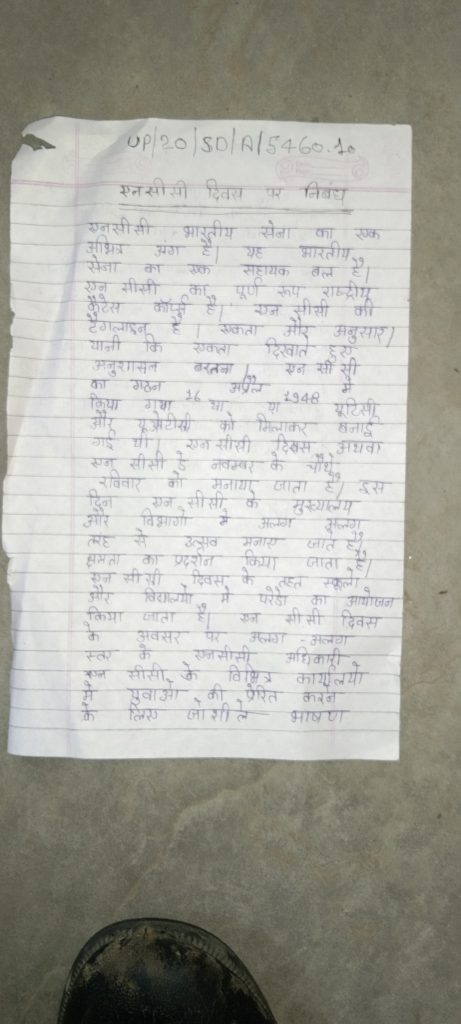 UP/20/SD/A/5460.10
एनसीसी दिवस पर निबंध
एनसीसी भारतीय सेना का एक
अभिन्न अंग है। यह भारतीय
सेना का एक सहायक बल है।
एन सीसी का पूर्ण रूप राष्ट्रीय
कैटेस कॉर्प्स है। एन सीसी की
टैगलाइन है। एकता और अनुसार।
यानी कि एकता दिखाते हुए
अनुशासन बरतना। एन सी सी
का गठन अप्रैल में
किया गया 16 था 1948 यूटिसी
और यूओटीसी को मिलाकर बनाई
गई थी। एनसीसी दिवस अथवा
एन सीसी डे नवम्बर के चौथे
रविवार को मनाया जाता है। इस
दिन एन सीसी के मुख्यालय
और विभागों में अलग अलग
तरह से उत्सव मनाए जाते है।
क्षमता का प्रदर्शन किया जाता है।
एन सीसी दिवस के तहत स्कूलो
और विद्यालयो में परेडो का आयोजन
किया जाता है। एन सी सी दिवस
के अवसर पर अलग - अलग
स्तर के एनसीसी अधिकारी
एन सीसी के विभिन्न कार्यालयो
में युवाओ को प्रेरित करने
के लिए जोशीले भाषण